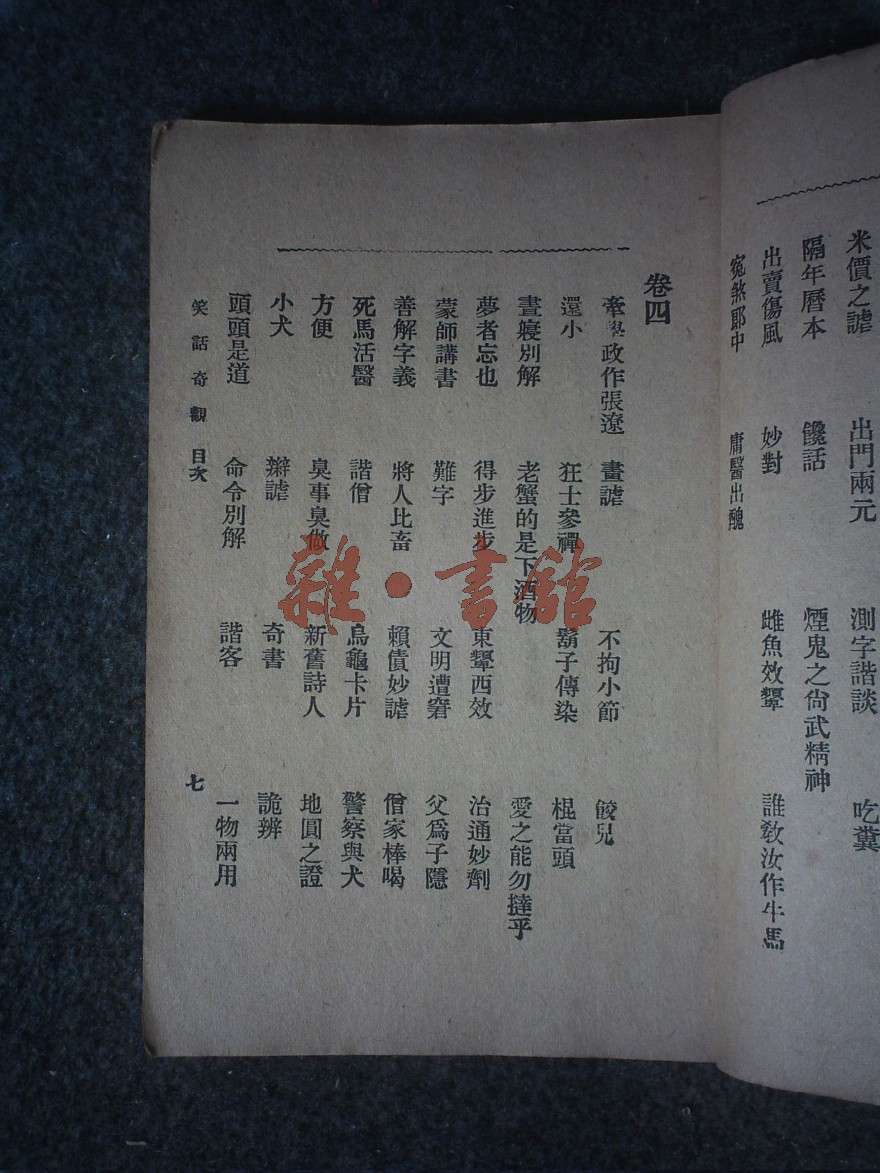 米價之謔　出門兩元　測字諧談　吃糞
隔年曆本　饞話　煙鬼之尙武精神
出賣傷風　妙對　雌魚效顰　誰敎汝作牛馬
冤煞郞中　庸醫出醜
卷四
牽學政作張遼　畫謔　不拘小節　餃兒
還小　狂士參禪　鬍子傳染　棍當頭
晝寢別解　老蟹的是下酒物　愛之能勿撻乎
夢者忘也　得步進步　東顰西效　治通妙劑
蒙師講書　難字　文明遭窘　父爲子隱
善解字義　將人比畜　賴債妙謔　僧家棒喝
死馬活醫　諧僧　烏龜卡片　警察與犬
方便　臭事臭做　新舊詩人　地圓之證
小犬　辯謔　奇書　詭辨
頭頭是道　命令別解　諧客　一物兩用
笑話奇觀　目次　七
雜·書館